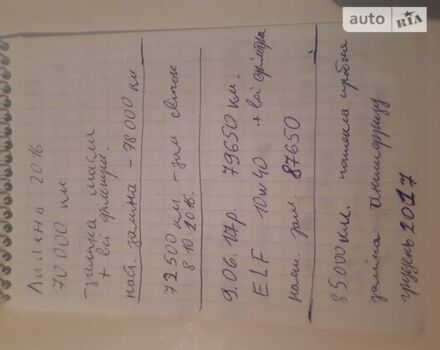 Липень 2016
70 000 км
заміна масла
+ всі фільтри.
наст. заміна - 78 000 км
72 500 км - зам свічок
8 10 2016.
9.06. 17р. 79650 км.
ELF 10w40 + всі фільтра
наст. зам. 87650
85000 км. потекла пробка
заміна Антифризу
грудень 2017
auto RIA